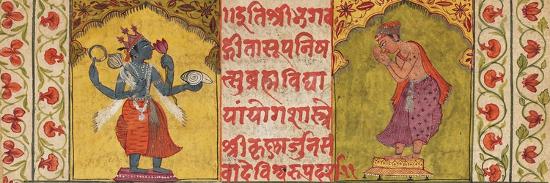 ॥इतिश्रीभगव
द्गीतासूपनिष
त्सुब्रह्मविद्या
यांयोगशास्त्रे
श्रीकृष्णार्जुनसं
वादेविश्वरूपदर्श